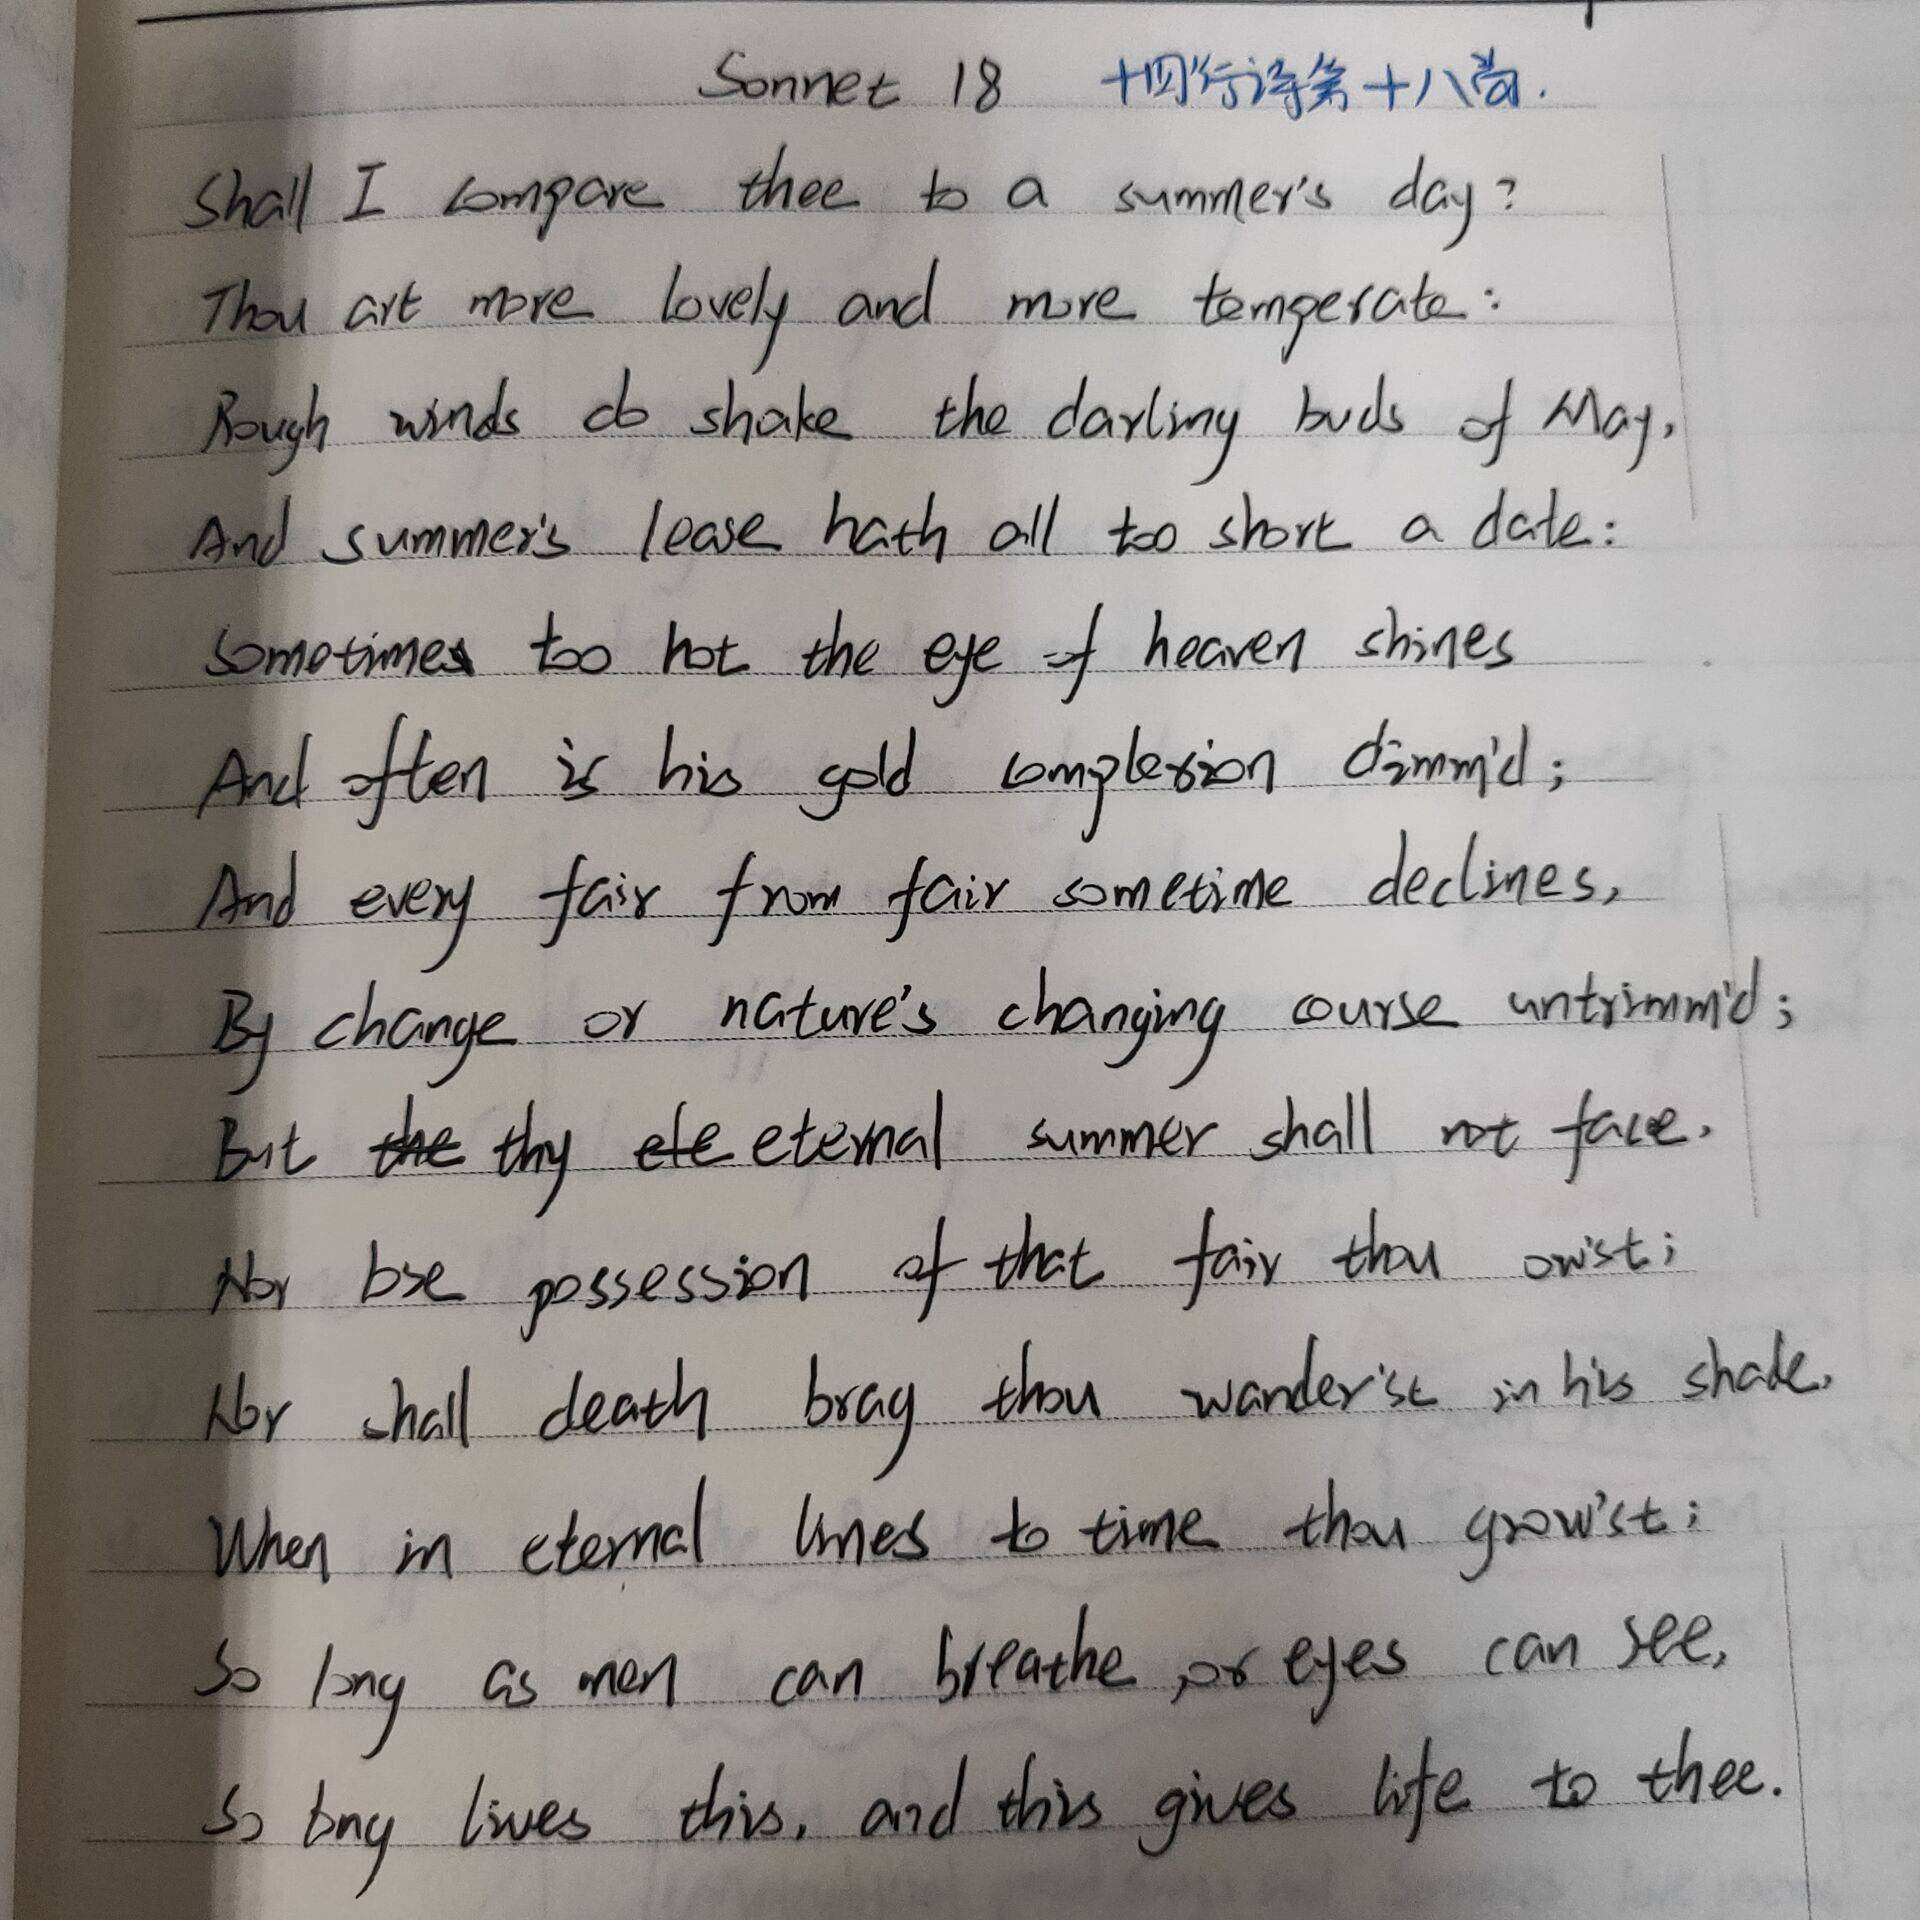 Sonnet 18 十四行诗第十八首.
Shall I compare thee to a summer's day?
Thou art more lovely and more temperate:
Rough winds do shake the darling buds of May,
And summer's lease hath all too short a date:
Sometimes too hot the eye of heaven shines
And often is his gold complexion dimm'd;
And every fair from fair sometime declines,
By change or nature's changing course untrimm'd;
But the thy ete eternal summer shall not face.
Nor lose possession of that fair thou ow'st;
Nor shall death brag thou wander'st in his shade,
When in eternal lines to time thou grow'st;
So long as men can breathe, or eyes can see,
So long lives this, and this gives life to thee.